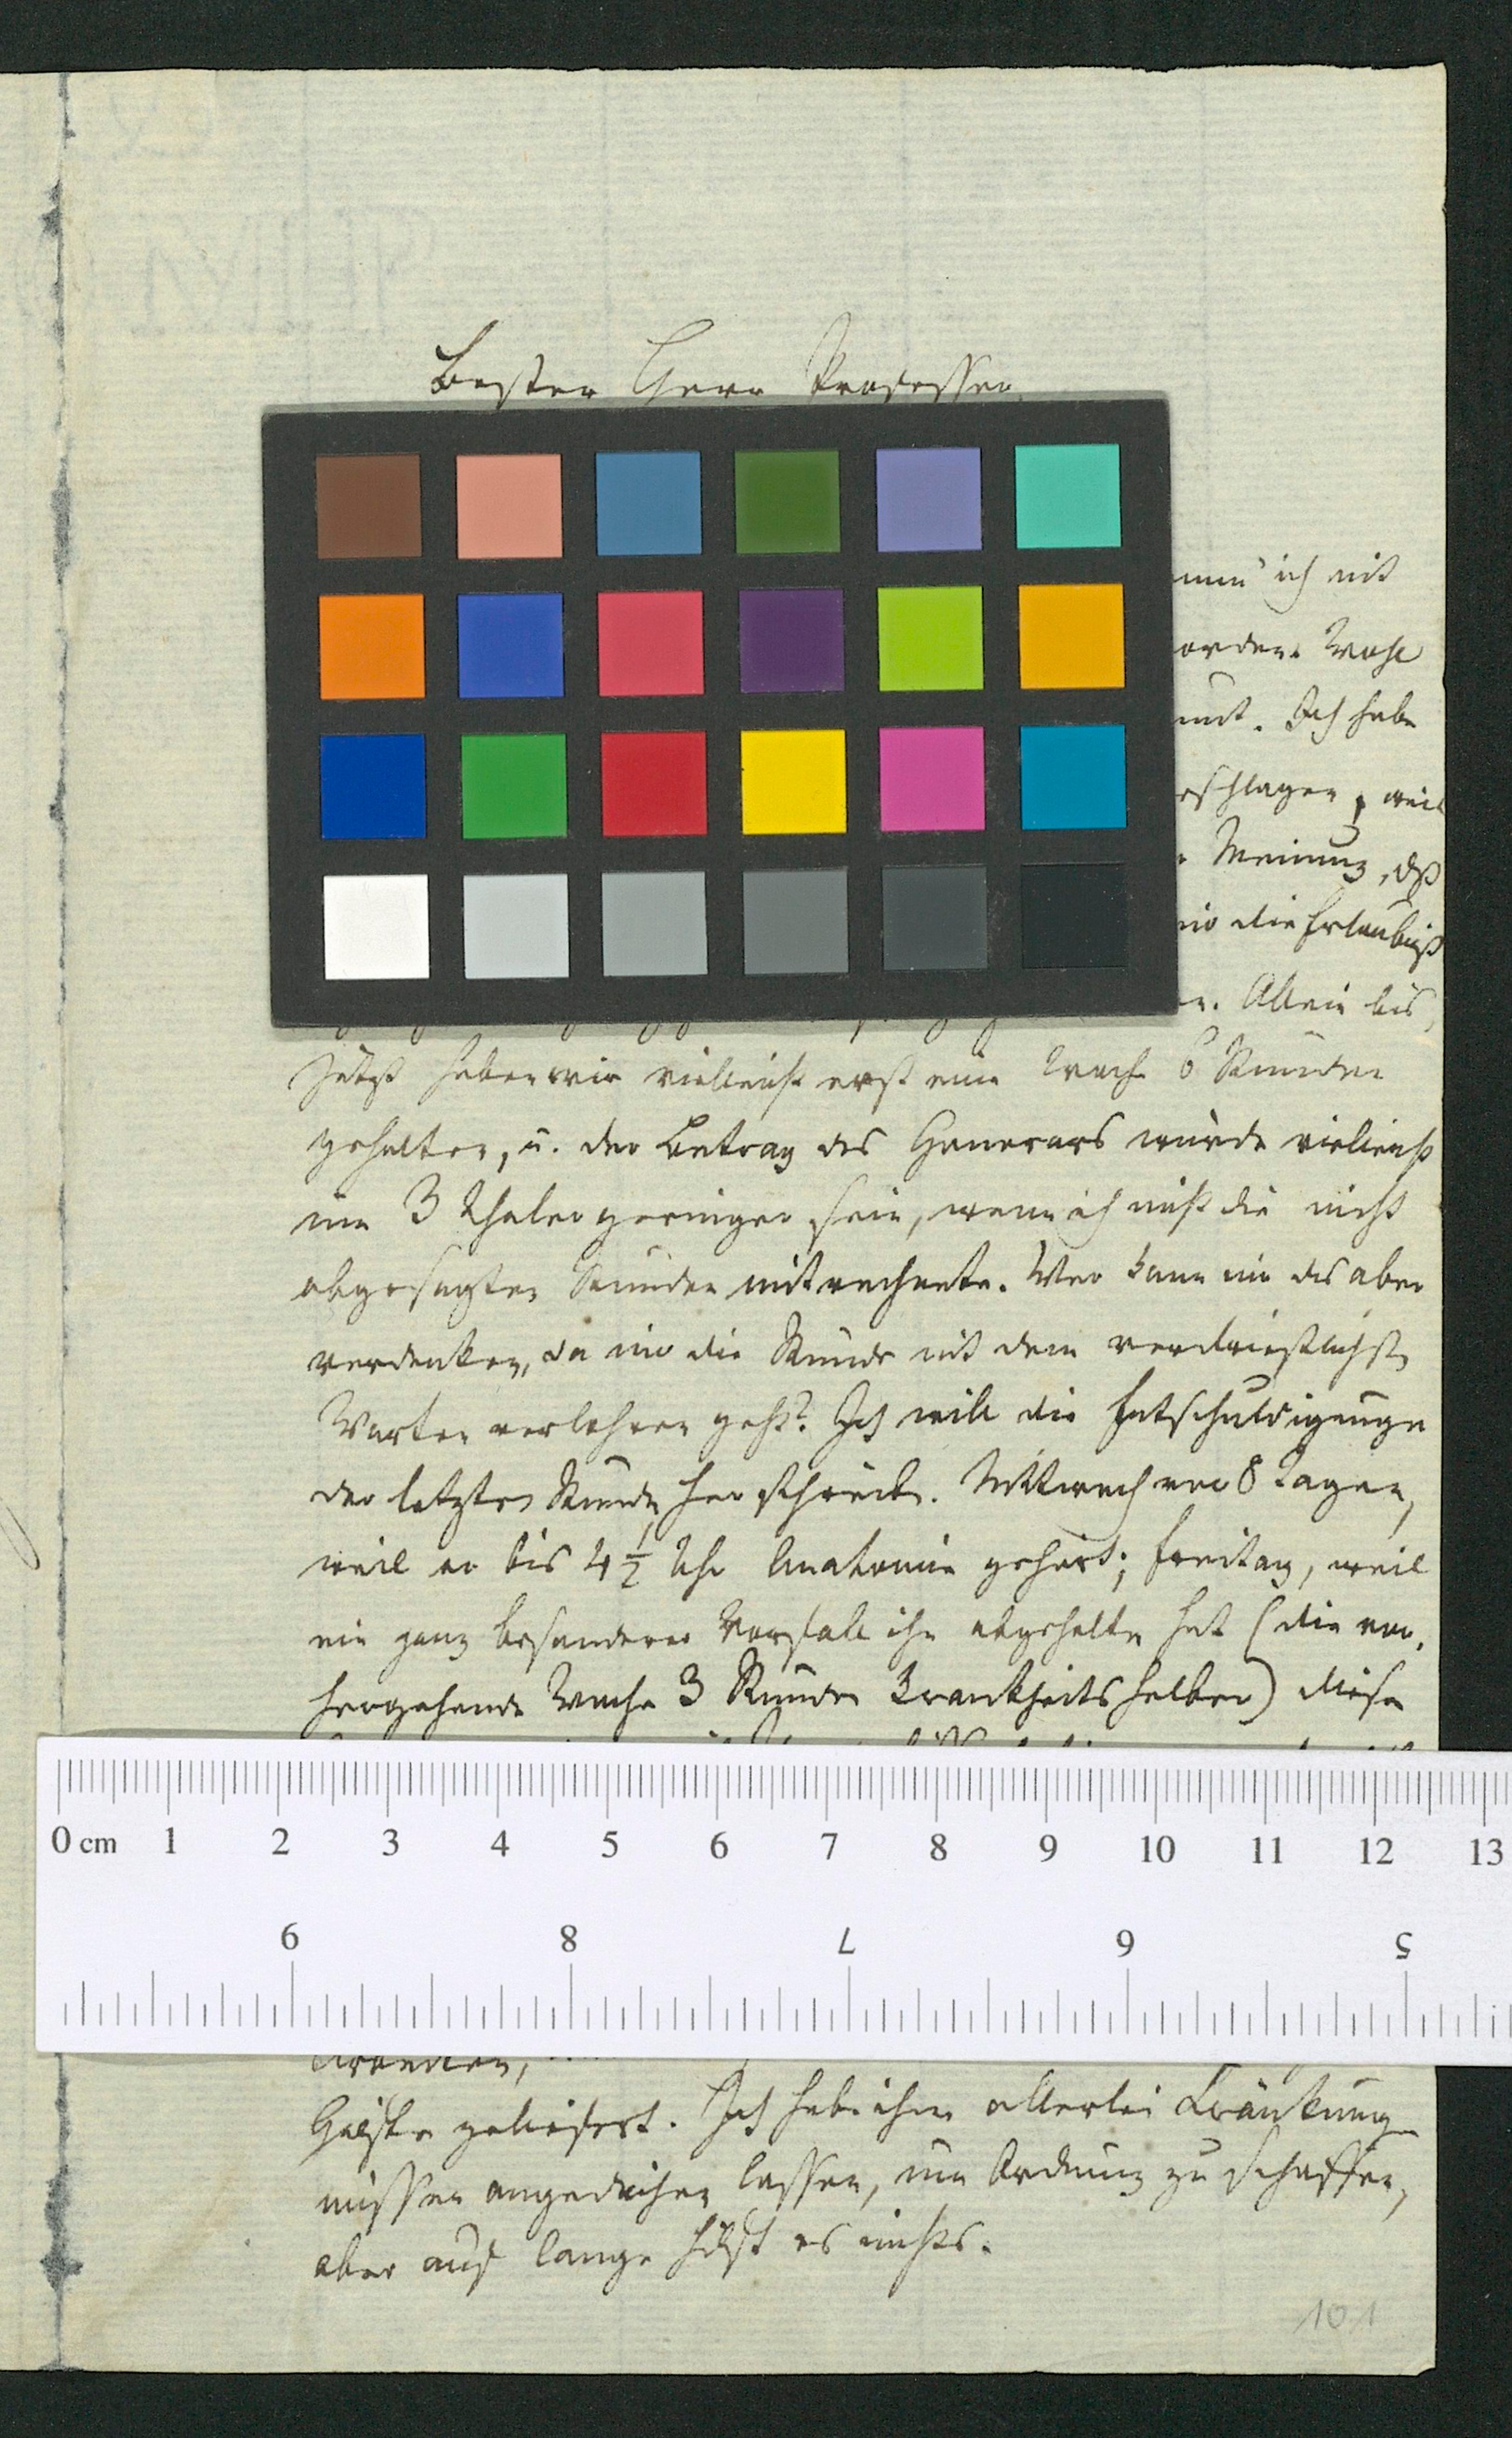 Bester Herr Professor,
ich mit
orden. Wohl
Ich habe
eschlagen, weil
Meinung, dß
mir die Erlaubniß
n. Allein bis
jetzt haben wir vielleicht erst eine Woche 6 Stunden
gehalten, u. der Betrag des Honorars würde vielleicht
um 3 Thaler geringer sein, wenn ich nicht die nicht
abgesagten Stunden mitrechnete. Wer kann mir das aber
verdenken, da mir die Stunde mit dem verdrießlichsten
Warten verlohren geht? Ich will die Entschuldigungen
der letzten Stunden her schreiben. Mittwoch vor 8 Tagen,
weil er bis 4 ½ Uhr Anatomie gehört; Freitag, weil
ein ganz besonderer Vorfall ihn abgehalten hat (die vor
hergehende Woche 3 Stunden Krankheits halber) diese
0 cm 1 2 3 4 5 6 7 8 9 10 11 12 13
9 8 7 6 5
geliefert. Ich habe ihm allerlei Kränkung
müssen angedeihen lassen, um Ordnung zu schaffen,
aber auf lange hilft es nichts.
101